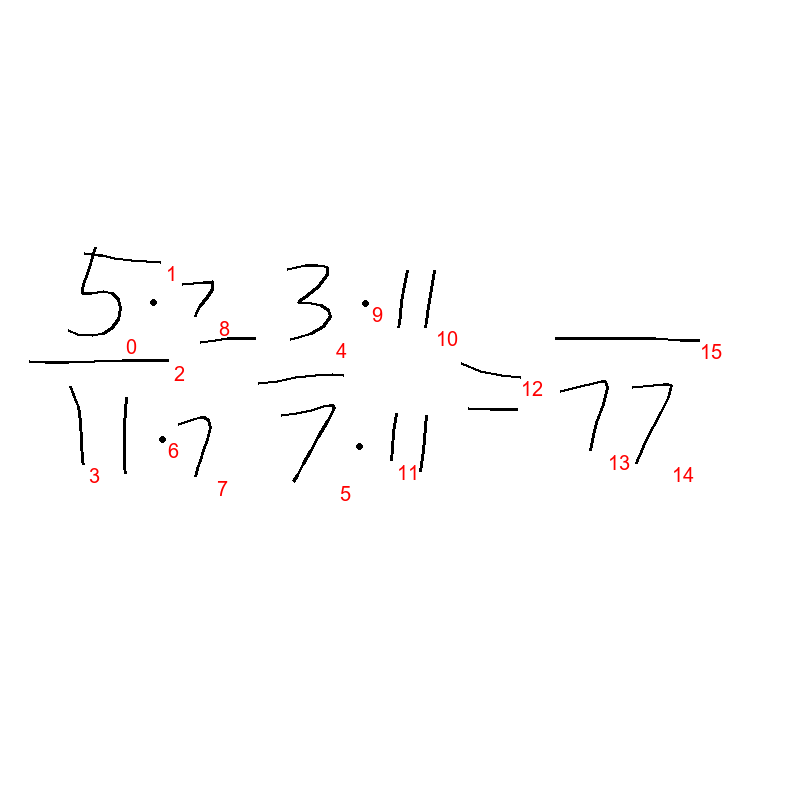 5·7 - 3·11 = ___
11·7 7·11 77
0 1 2 3 4 5 6 7 8 9 10 11 12 13 14 15